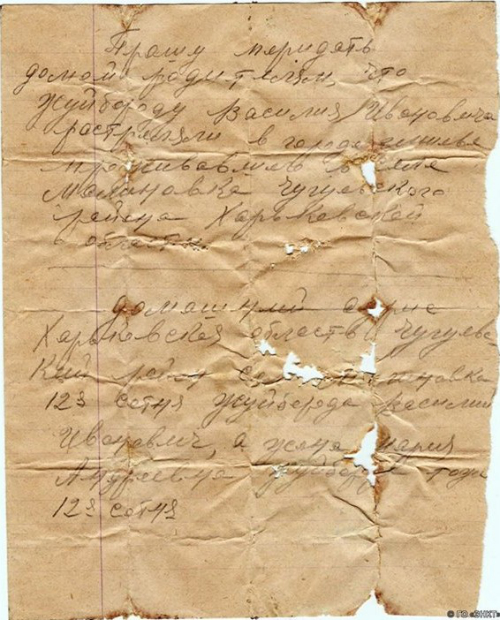 Прашу перидать
домой родителям, что
Жуйбороду Василия Ивановича
растриляли в городе
проживавшив
Малиновка Чугуевского
района Харьковской
области
домашний адрис
Харковская область Чугуевс
Кий район село
123 сотня Жуйборода Василий
Иванович, а жона Мария
Андреевна Жуйборода тоже
123 сотня
© ГЭ «ЗНКТ»